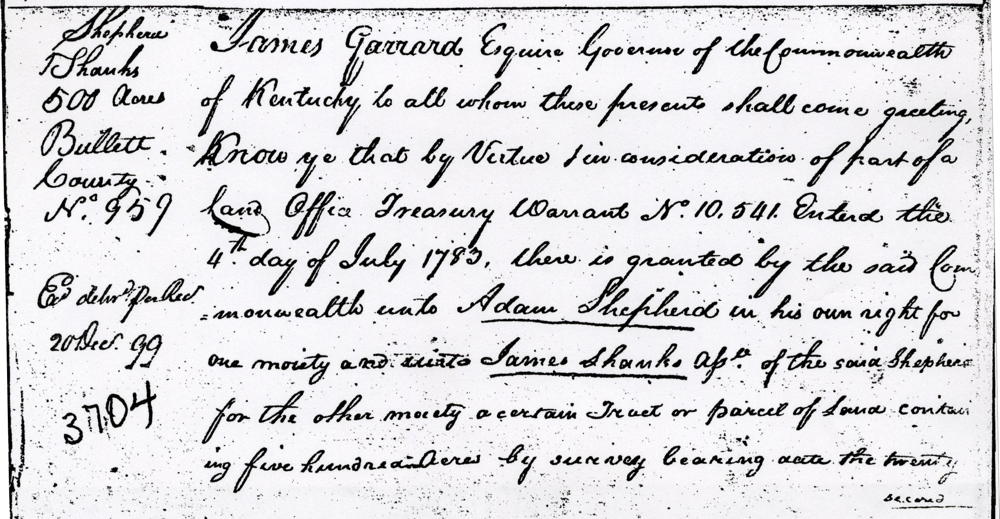 Shepherd
& Shanks
500 Acres
Bullett
County
No. 959
Exd. delivd. per Rec.
20 Dec. 99
3704
James Garrard Esquire Governor of the Commonwealth
of Kentucky to all whom these presents shall come greeting,
Know ye that by Virtue & in consideration of part of a
Land Office Treasury Warrant No. 10,541. Enterd the
4th day of July 1783, there is granted by the said Com
=monwealth unto Adam Shepherd in his own right for
one moiety and unto James Shanks Asse. of the said Shepherd
for the other moiety a certain Tract or parcel of Land contain
ing five hundred Acres by survey bearing date the twenty
second